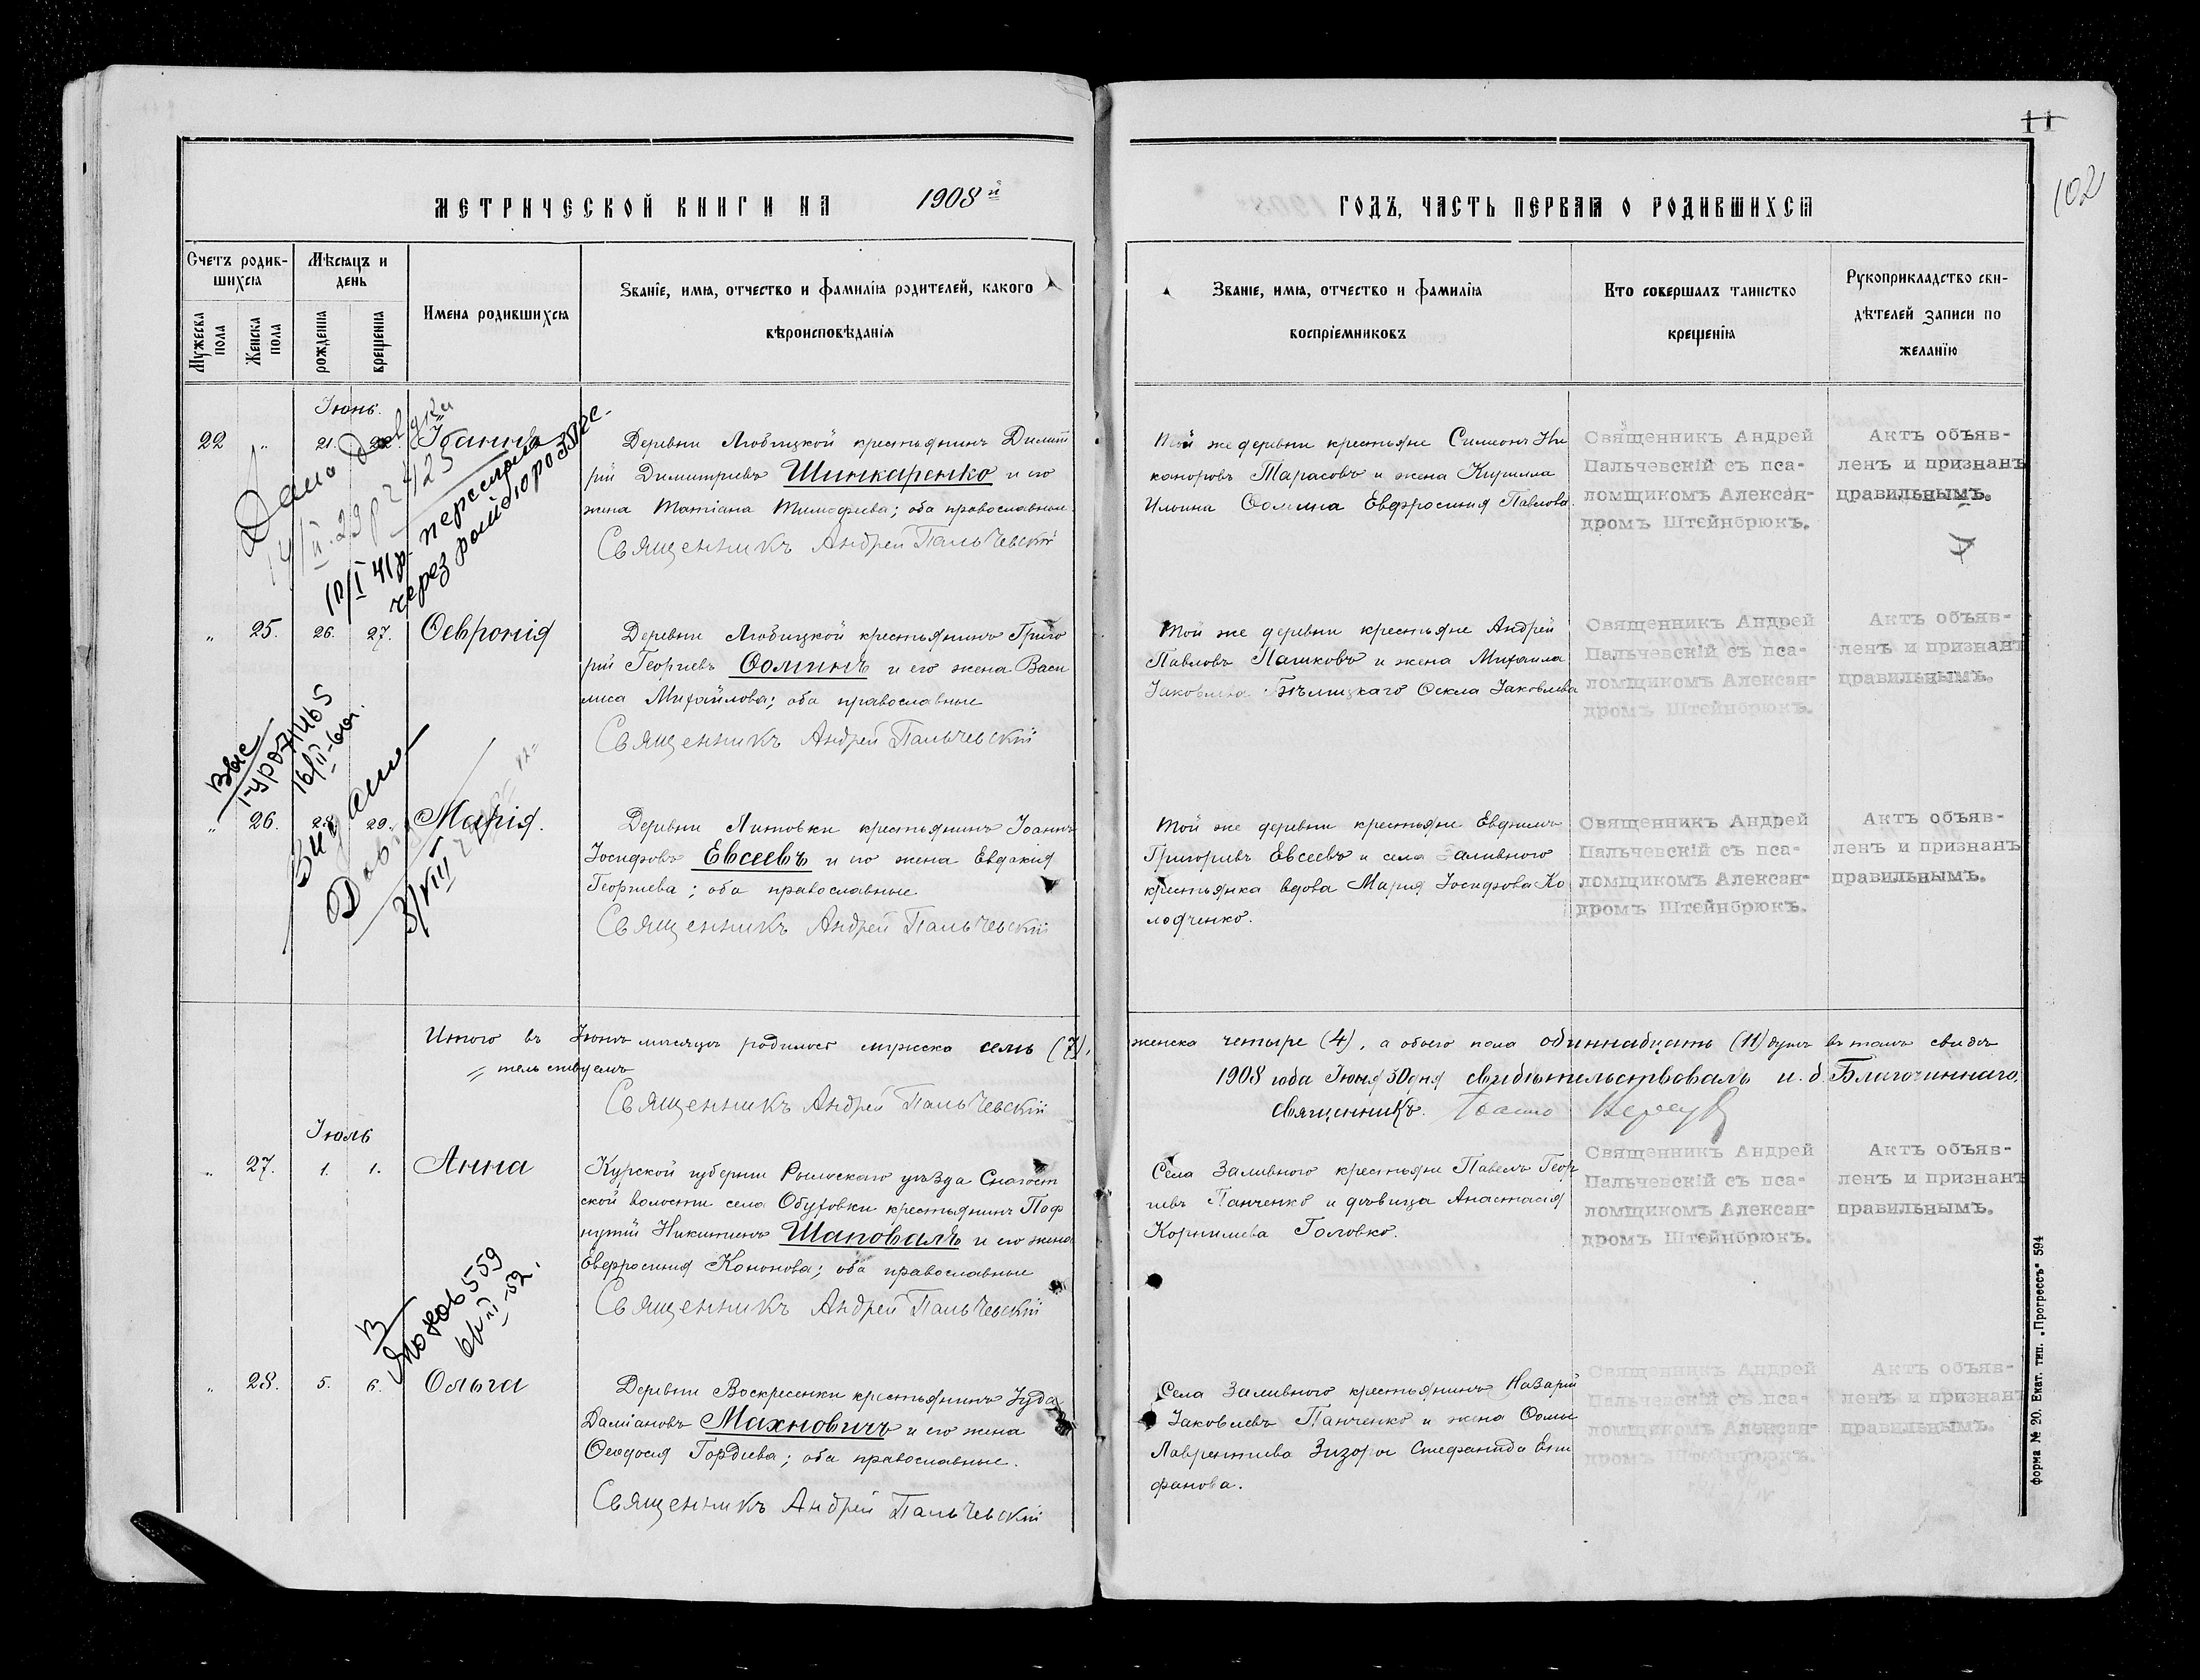 11
102
МЕТРИЧЕСКОЙ КНИГИ НА 1908й
ГОДЪ, ЧАСТЬ ПЕРВАЯ О РОДИВШИХСЯ
Счетъ родив-
шихся
Мѣсяцъ и
день
Мужеска
пола
Женска
пола
рожденія
крещенія
Имена родившихся
Званіе, имя, отчество и фамилія родителей, какого
вѣроисповѣданія
Званіе, имя, отчество и фамилія
воспріемниковъ
Кто совершалъ таинство
крещенія
Рукоприкладство сви-
дѣтелей записи по
желанію
Іюнь.
22 " 21. 22. Іоаннъ
Деревни Любицкой крестьянинъ Димит
рій Димитріевъ Шинкаренко и его
жена Татіана Тимофіева; оба православные
Священникъ Андрей Пальчевскій
Той же деревни крестьяне Симеонъ Ни
каноровъ Тарасовъ и жена Кирилла
Ильина Ѳомина Евфросинія Павлова.
Священникъ Андрей
Пальчевскій съ пса-
ломщикомъ Алексан-
дромъ Штейнбрюкъ.
Актъ объяв-
ленъ и признанъ
правильнымъ.
" 25. 26. 27. Ѳевронія
Деревни Любицкой крестьянинъ Григо
рій Георгіевъ Ѳоминъ и его жена Васи
лиса Михайлова; оба православные
Священникъ Андрей Пальчевскій
Той же деревни крестьяне Андрей
Павловъ Пашковъ и жена Михаила
Іаковлева Бѣлицкаго Ѳекла Іаковлева
Священникъ Андрей
Пальчевскій съ пса-
ломщикомъ Алексан-
дромъ Штейнбрюкъ.
Актъ объяв-
ленъ и признанъ
правильнымъ.
" 26. 28. 29. Марія.
Деревни Литовки крестьянинъ Іоаннъ
Іосифовъ Евсеевъ и его жена Евдокія
Георгіева; оба православные.
Священникъ Андрей Пальчевскій
Той же деревни крестьяне Евфимъ
Григоріевъ Евсеевъ и села Заливного
крестьянка вдова Марія Іосифова Ко
лодченко.
Священникъ Андрей
Пальчевскій съ пса-
ломщикомъ Алексан-
дромъ Штейнбрюкъ.
Актъ объяв-
ленъ и признанъ
правильнымъ.
Итого въ Іюнѣ мѣсяцѣ родилось мужска семь (7),
женска четыре (4), а обоего пола одиннадцать (11) душъ въ томъ свидѣ
тельствуемъ
1908 года Іюня 30 дня свидѣтельствовалъ и. д. Благочиннаго,
Священникъ Андрей Пальчевскій
священникъ Іоаннъ
Іюль
" 27. 1. 1. Анна
Курской губерніи Рыльскаго уѣзда Снагост
ской волости села Обуховки крестьянинъ Паф
нутій Никитинъ Шаповалъ и его жена
Евфросинія Кононова; оба православные
Священникъ Андрей Пальчевскій
Села Заливного крестьяне Павелъ Геор
гіевъ Панченко и дѣвица Анастасія
Корнилиева Головко.
Священникъ Андрей
Пальчевскій съ пса-
ломщикомъ Алексан-
дромъ Штейнбрюкъ.
Актъ объяв-
ленъ и признанъ
правильнымъ.
" 28. 5. 6. Ольга
Деревни Воскресенки крестьянинъ Іуда
Даміановъ Махновичъ и его жена
Ѳеодосія Гордіева; оба православные.
Священникъ Андрей Пальчевскій
Села Заливного крестьянинъ Назарій
Іаковлевъ Панченко и жена Ѳомы
Лаврентіева Зизоры Стефанида Епи
фанова.
Священникъ Андрей
Пальчевскій съ пса-
ломщикомъ Алексан-
дромъ Штейнбрюкъ.
Актъ объяв-
ленъ и признанъ
правильнымъ.
Форма № 20. Екат. тип. „Прогрессъ" 594